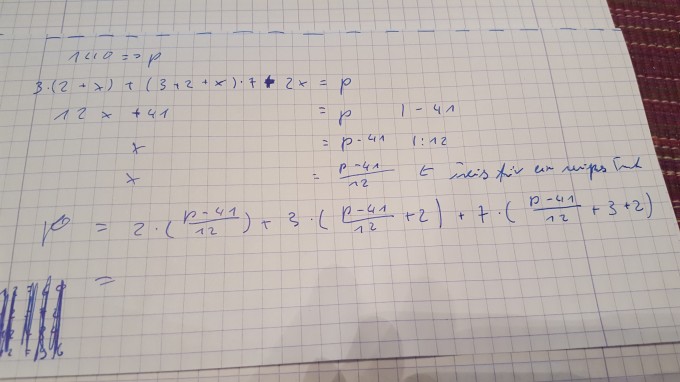 1110 => p
3·(2 + x) + (3+2+x)·7 + 2x = p
12x + 41 = p | - 41
x = p-41 | : 12
x = \frac{p-41}{12} ← für ein
p = 2·(\frac{p-41}{12}) + 3·(\frac{p-41}{12} + 2) + 7·(\frac{p-41}{12} + 3+2)
=